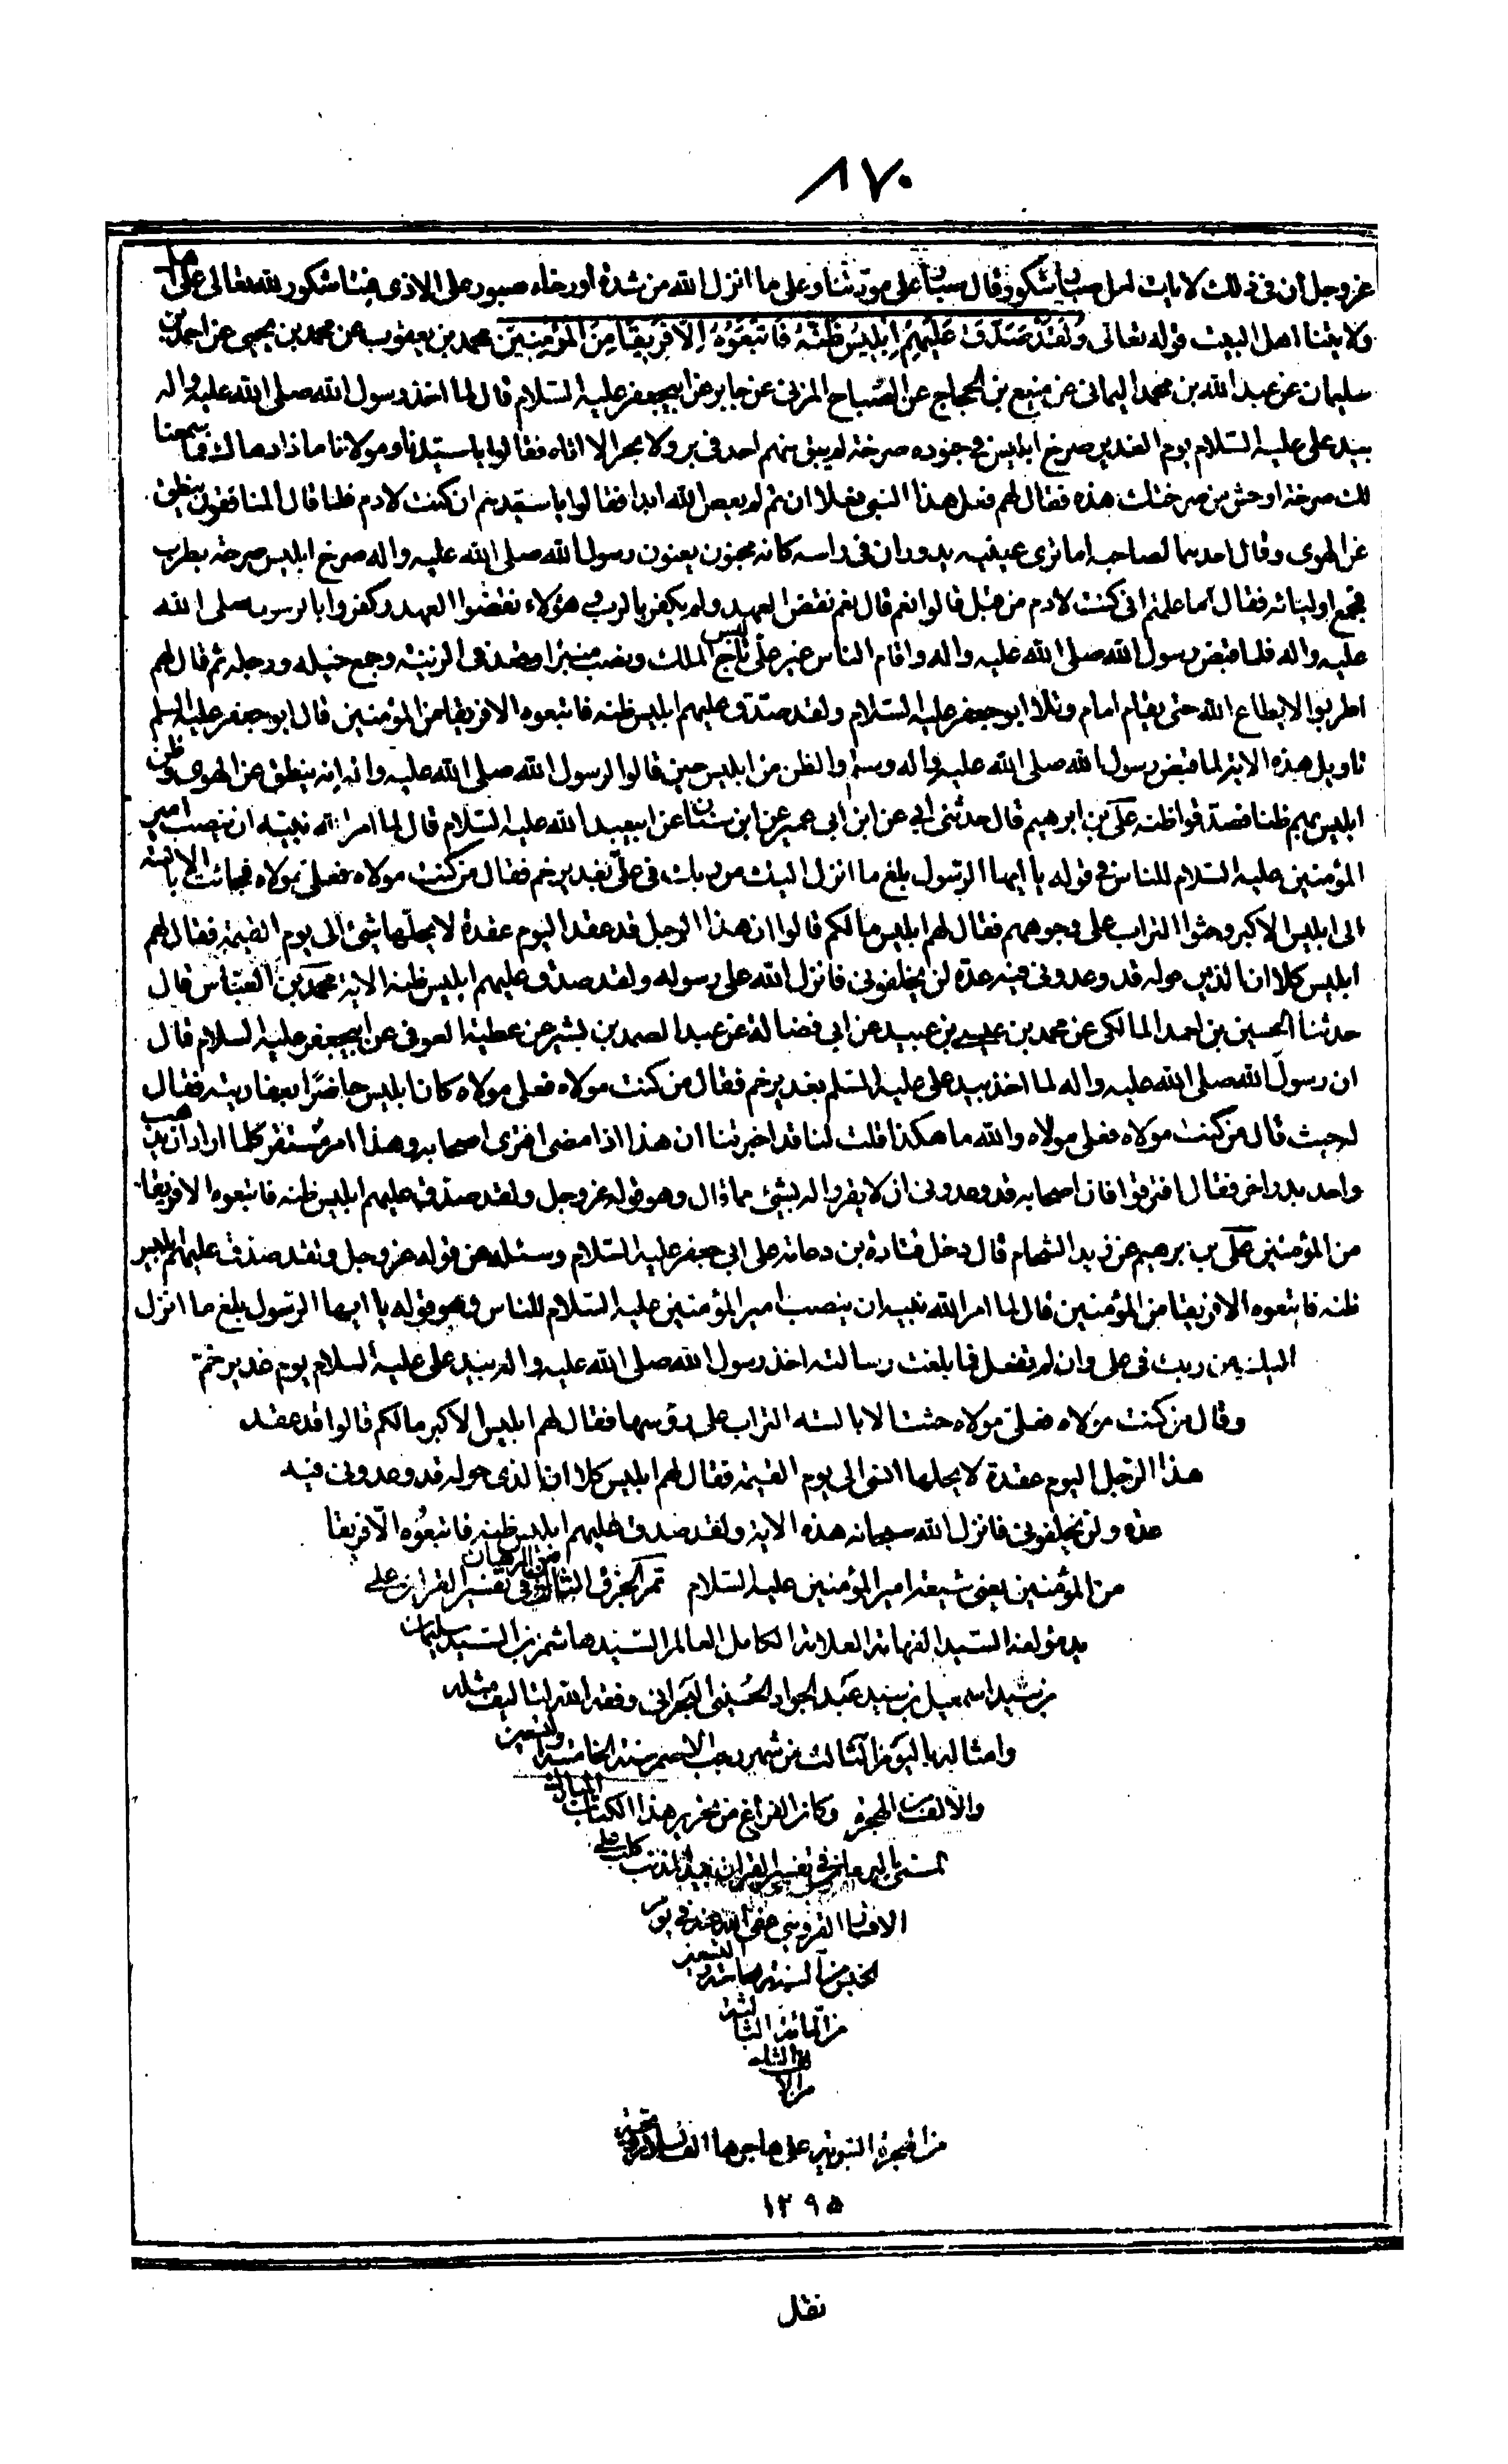 ٨٧٠
عز وجل ان فى ذلك لايات لكل صبار شكور قال صبار على مودتنا وعلى ما انزل الله من شدة او رخاء صبور على الاذى فينا شكور لله تعالى على
ولايتنا اهل البيت قوله تعالى وَلَقَدْ صَدَّقَ عَلَيْهِمْ اِبْلِيسُ ظَنَّهُ فَاتَّبَعُوُهُ اِلّا فَرِيقًا مِنَ الْمُؤْمِنِينَ محمد بن يعقوب عن محمد بن يحيى عن احمد بن
سليمان عن عبد الله بن محمد اليمانى عن منيع بن الحجاج عن الصباح المزنى عن جابر عن ابيجعفر عليه السلام قال لما اخذ رسول الله صلى الله عليه واله
بيد على عليه السلام يوم الغدير صرخ ابليس فى جنوده صرخة لم يبق منهم احد فى بر ولا بحر الا اتاه فقالوا يا سيدنا ومولانا ماذا دهاك فما سمعنا
لك صرخة اوحش من صرختك هذه فقال لهم فعل هذا النبى فعلا ان تم لم يعص الله ابدا فقالوا يا سيدهم ان كنت لادم فلما قال المنافقون ينطق
عن الهوى وقال احدهما لصاحبه اما ترى عينيه يدوران فى راسه كانه مجنون يعنون رسول الله صلى الله عليه واله صرخ ابليس صرخة بطرب
فجمع اوليائه فقال اما علمتم انى كنت لادم من قبل قالوا نعم قال نعم نقض العهد ولم يكفر بالرب وهؤلاء نقضوا العهد وكفروا بالرسول صلى الله
عليه واله فلما قبض رسول الله صلى الله عليه واله واقام الناس غير على لبس تاج الملك ونصب منبرا وقعد فى الزينة وجمع خيله ورجله ثم قال لهم
اطربوا لا يطاع الله حتى يقام امام وتلا ابو جعفر عليه السلام ولقد صدق عليهم ابليس ظنه فاتبعوه الا فريقا من المؤمنين قال ابو جعفر عليه السلم
تاويل هذه الاية لما قبض رسول الله صلى الله عليه واله وسلم والظن من ابليس حين قالوا لرسول الله صلى الله عليه واله انه ينطق عن الهوى وظن
ابليس بهم ظنا فصدقوا ظنه على بن ابرهيم قال حدثنى ابى عن ابن ابى عمير عن ابن سنان عن ابيعبد الله عليه السلام قال لما امر الله نبيه ان ينصب امير
المؤمنين عليه السلام للناس فى قوله يا ايها الرسول بلغ ما انزل اليك من ربك فى على بغدير خم فقال من كنت مولاه فعلى مولاه فجائت الابالسة
الى ابليس الاكبر وحثوا التراب على وجوههم فقال لهم ابليس مالكم قالوا ان هذا الرجل قد عقد اليوم عقدة لا يحلها شئ الى يوم القيمة فقال لهم
ابليس كلا ان الذين حوله قد وعدونى فيه عدة لن يخلفونى فانزل الله على رسوله ولقد صدق عليهم ابليس ظنه الاية محمد بن العباس قال
حدثنا الحسين بن احمد المالكى عن محمد بن عيسى بن عبيد عن ابى فضالة عن عبد الصمد بن بشير عن عطية العوفى عن ابيجعفر عليه السلام قال
ان رسول الله صلى الله عليه واله لما اخذ بيد على عليه السلم بغدير خم فقال من كنت مولاه فعلى مولاه كان ابليس حاضرا بعفاريته فقال
له حيث قال من كنت مولاه فعلى مولاه والله ما هكذا قلت لنا قد اخبرتنا ان هذا اذا مضى افترق اصحابه وهذا امر مستقر كلما اراد ان يذهب
واحد بدر اخر فقال افترقوا فان اصحابه قد وعدونى ان لا يقروا له بشئ مما قال وهو قوله عز وجل ولقد صدق عليهم ابليس ظنه فاتبعوه الا فريقا
من المؤمنين على بن ابرهيم عن زيد الشحام قال دخل قتادة بن دعامة على ابى جعفر عليه السلام وسئله عن قوله عز وجل ولقد صدق عليهم ابليس
ظنه فاتبعوه الا فريقا من المؤمنين قال لما امر الله نبيه ان ينصب امير المؤمنين عليه السلام للناس وهو قوله يا ايها الرسول بلغ ما انزل
اليك من ربك فى على وان لم تفعل فما بلغت رسالته اخذ رسول الله صلى الله عليه واله بيد على عليه السلام يوم غدير خم
وقال من كنت مولاه فعلى مولاه حثت الابالسة التراب على رؤسها فقال لهم ابليس الاكبر مالكم قالوا قد عقد
هذا الرجل اليوم عقدة لا يحلها انسى الى يوم القيمة فقال لهم ابليس كلا ان الذى حوله قد وعدونى فيه
عدة ولن يخلفونى فانزل الله سبحانه هذه الاية ولقد صدق عليهم ابليس ظنه فاتبعوه الا فريقا
من المؤمنين يعنى شيعة امير المؤمنين عليه السلام تم الجزء الثالث من البرهان فى تفسير القران على
يد مؤلفه السيد الفهامة العلامة الكامل العالم السيد هاشم بن السيد سليمان
بن سيد اسمعيل بن سيد عبد الجواد الحسينى البحرانى وفقه الله لتاليف مثله
وامثاله باليوم الثالث من شهر رجب الاصم سنة الخامسة والتسعين
والالف الهجرة وكان الفراغ من تحرير هذا الكتاب المبارك
المسمى بالبرهان فى تفسير القران بيد المذنب كلب على
الافشار القزوينى عفى الله عنه فى يوم
الخميس من السنة الخامسة والتسعين
من المائة الثالثة
من الالف
من الهجرة النبوية على هاجرها الف سلام وتحية
١٢٩٥
نقل